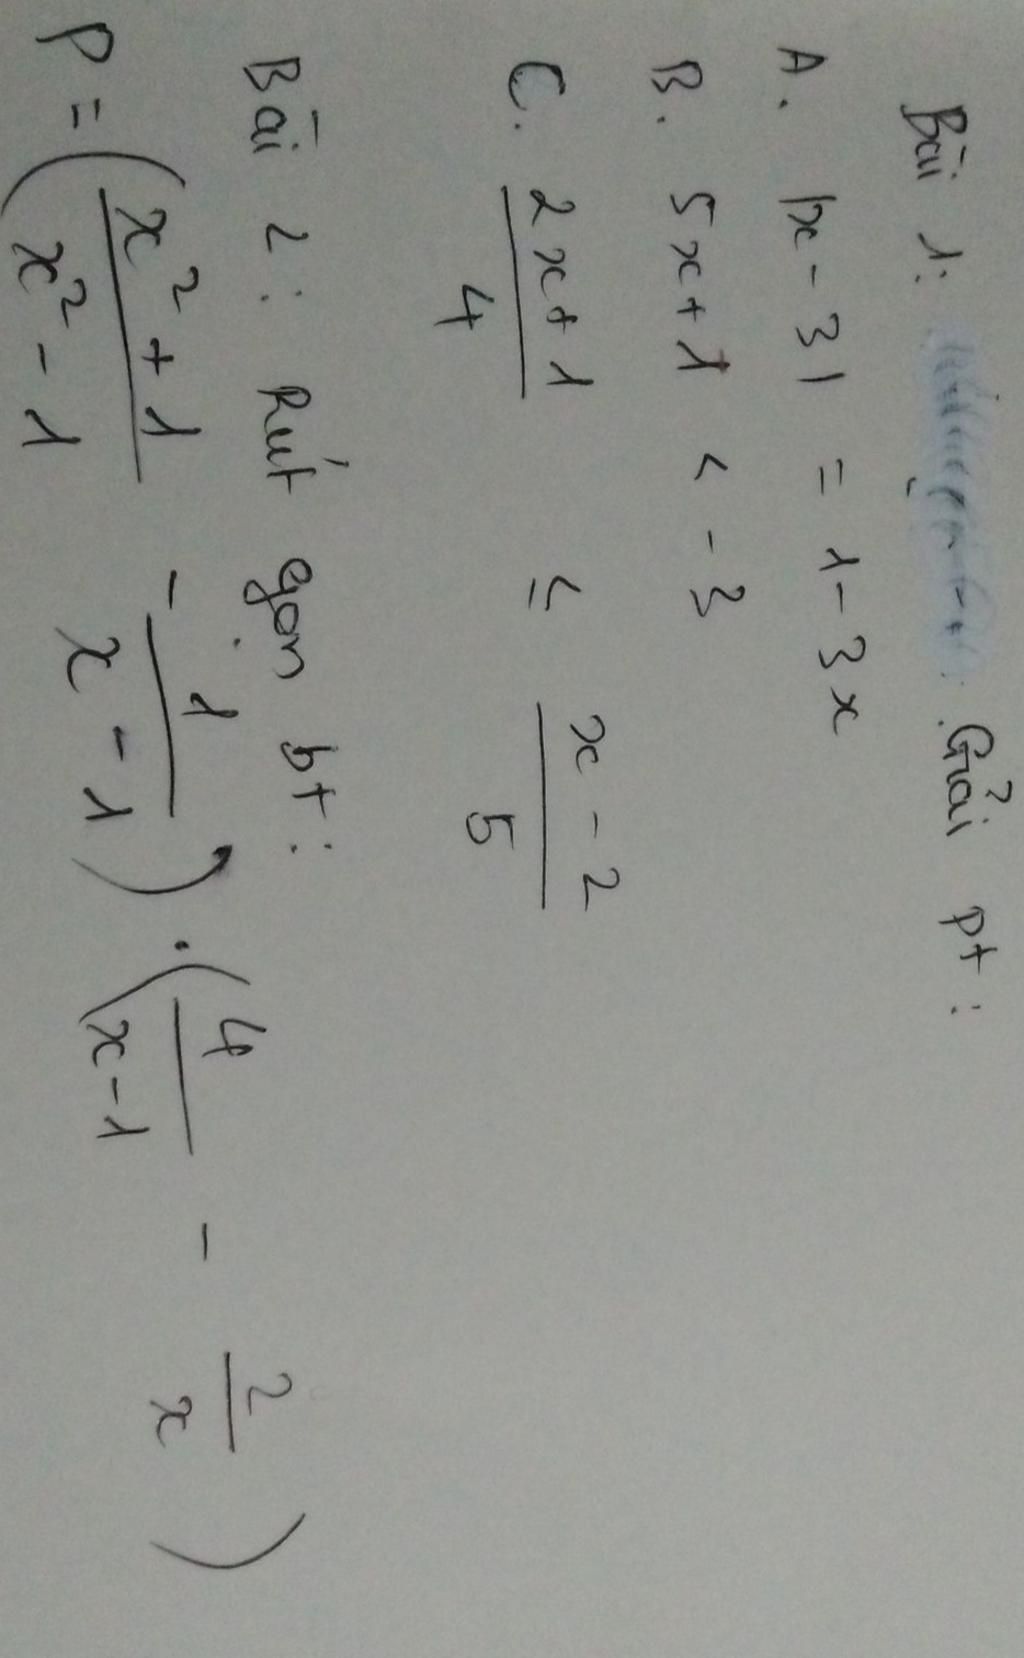 Bài 1: Giải pt:
A. |x - 3| = 1 - 3x
B. 5x + 1 < - 3
C. (2x + 1)/4 ≤ (x - 2)/5
Bài 2: Rút gọn bt:
P = ((x² + 1)/(x² - 1) - 1/(x - 1)) . (4/(x - 1) - 2/x)